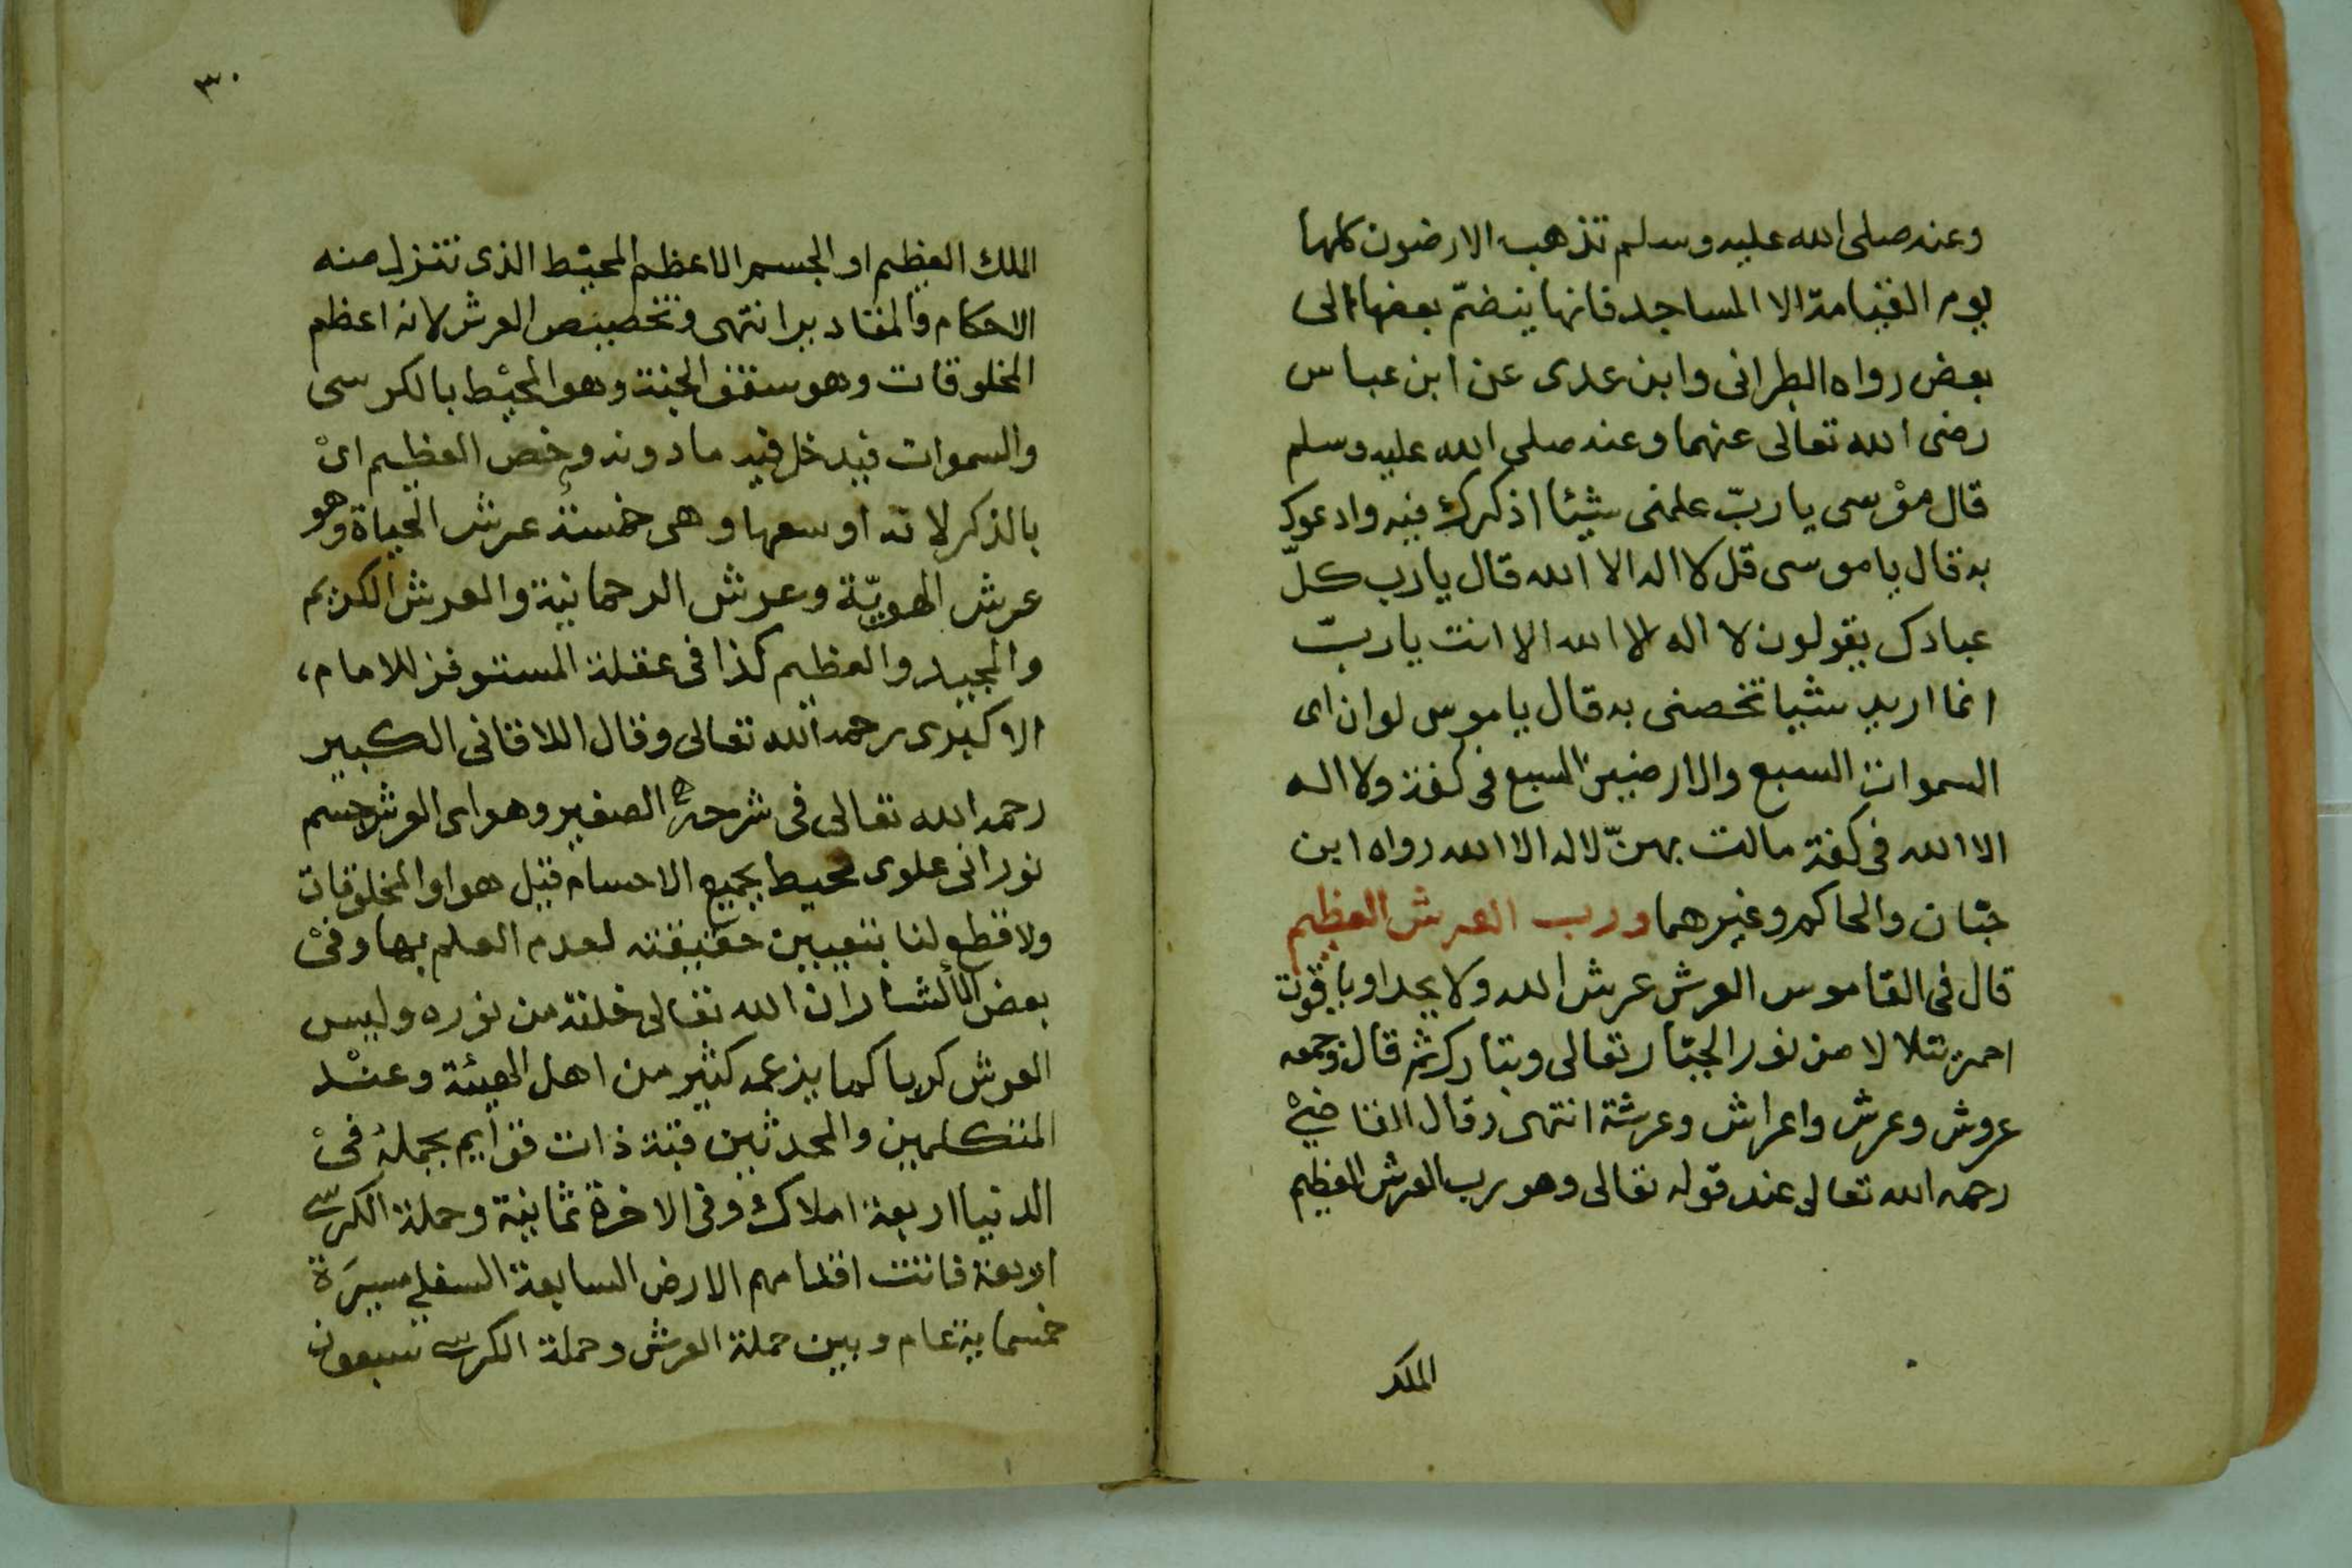 وعنه صلى الله عليه وسلم تذهب الارضون كلها
يوم القيامة الا المساجد فانها ينضمّ بعضها الى
بعض رواه الطبرانى وابن عدى عن ابن عباس
رضى الله تعالى عنهما وعنه صلى الله عليه وسلم
قال موسى يا ربّ علمنى شيئا اذكرك فيه وادعوك
به قال يا موسى قل لا اله الا الله قال يا رب كلّ
عبادك يقولون لا اله الا الله الا انت يا ربّ
انما اريد شيا تخصنى به قال يا موسى لو ان اى
السموات السبع والارضين السبع فى كفة ولا اله
الا الله فى كفة مالت بهنّ لا اله الا الله رواه ابن
حبّان والحاكم وغيرهما ورب العرش العظيم
قال فى القاموس العرش عرش الله ولا يحد او ياقوت
احمر يتلالا من نور الجبّار تعالى وتبارك ثم قال وجمعه
عروش وعرش واعراش وعرشة انتهى وقال القاضى
رحمه الله تعالى عند قوله تعالى وهو رب العرش العظيم
الملك
٣٠
الملك العظيم او الجسم الاعظم المحيط الذى تتنزل منه
الاحكام والمقادير انتهى وتخصيص العرش لانه اعظم
المخلوقات وهو سقف الجنة وهو المحيط بالكرسى
والسموات فيدخل فيه ما دونه وخص العظيم اى
بالذكر لانه اوسعها وهى خمسة عرش الحياة وهو
عرش الهويّة وعرش الرحمانية والعرش الكريم
والمجيد والعظيم كذا فى عقلة المستوفز للامام،
الاكبرى رحمه الله تعالى وقال اللاقانى الكبير
رحمه الله تعالى فى شرحه الصغير وهو اى العرش جسم
نورانى علوى محيط بجميع الاجسام قيل هو اول المخلوقات
ولا قطع لنا بتعيين حقيقته لعدم العلم بها وفى
بعض الآثار ان الله تعالى خلقه من نوره وليس
العرش كريا كما يزعمه كثير من اهل الهيئة وعند
المتكلمين والمحدثين قبّة ذات قوايم يحمله فى
الدنيا اربعة املاك وفى الاخرة ثمانية وحملة الكرسى
اربعة فاتت اقدامهم الارض السابعة السفلى مسيرة
خمسماية عام وبين حملة العرش وحملة الكرسى سبعون